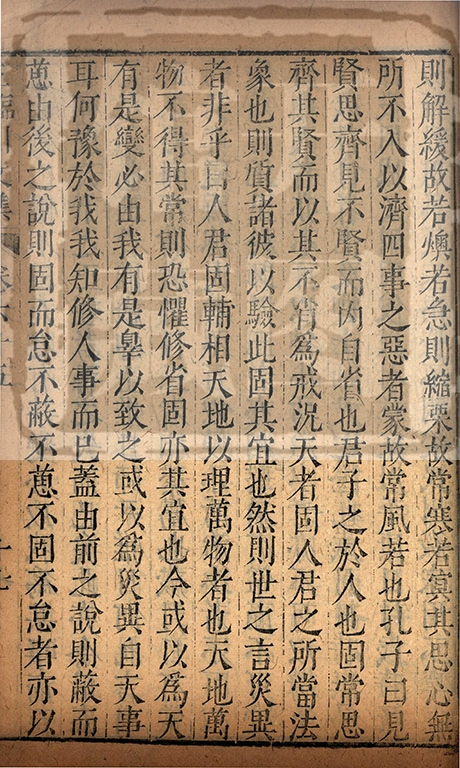 則解緩故若燠若急則縮栗故常寒若冥其思心無
所不入以濟四事之惡者蒙故常風若也孔子曰見
賢思齊見不賢而內自省也君子之於人也固常思
齊其賢而以其不肖為戒況天者固人君之所當法
象也則質諸彼以驗此固其宜也然則世之言災異
者非乎曰人君固輔相天地以理萬物者也天地萬
物不得其常則恐懼修省固亦其宜也今或以為天
有是變必由我有是辠以致之或以為災異自天事
耳何豫於我我知修人事而已蓋由前之說則蔽而
葸由後之說則固而怠不蔽不葸不固不怠者亦以
臨川文集 卷六十五 十七